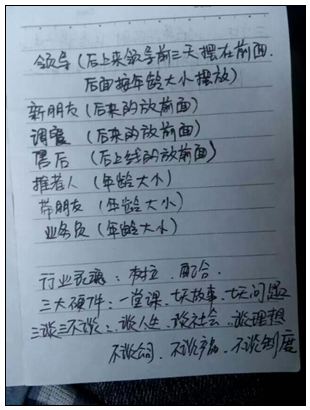 领导（后上来领导前三天摆在前面.
后面按年龄大小摆放）
新朋友（后来的放前面）
调寝（后来的放前面）
售后（后上线的放前面）
推荐人（年龄大小）
带朋友（年龄大小）
业务员（年龄大小）
行业灵魂：树立．配合．
三大硬件：一堂课．七天故事．七天问题
三谈三不谈：谈人生．谈社会．谈理想
不谈公司．不谈产品．不谈制度